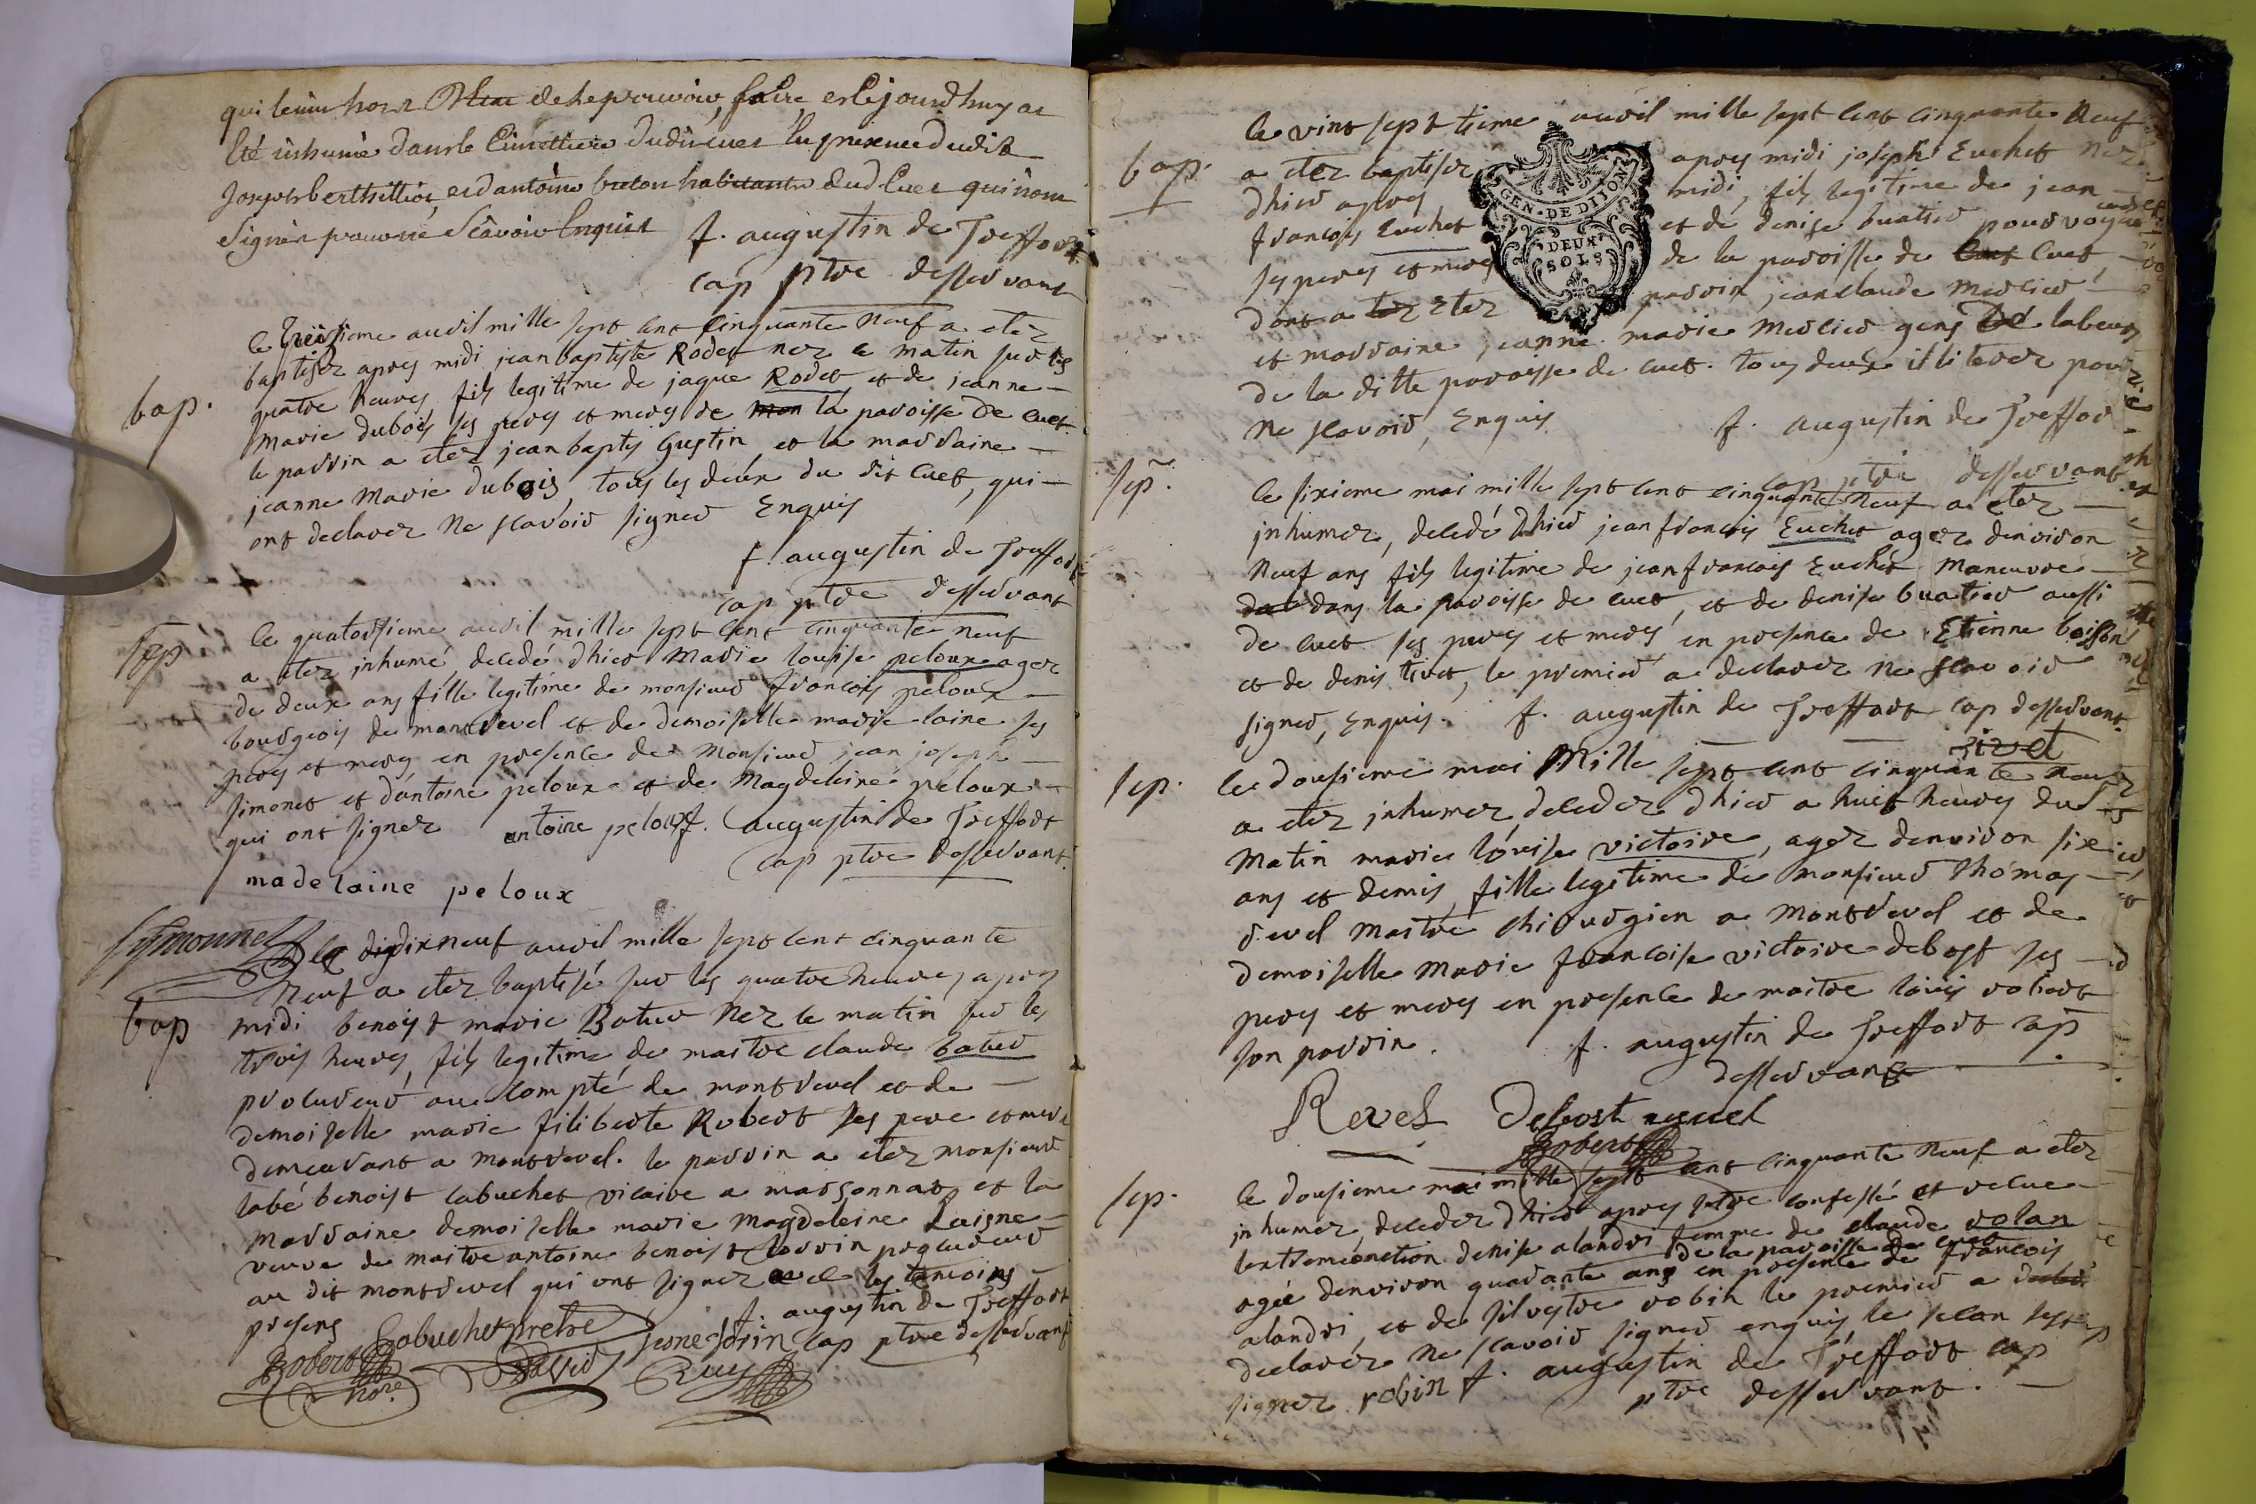 qui leurs hors de le pouvoir faire et le jourdhuy a
été inhumé dans le cimettiere dudit cuet en presence dudit
Joseph berthillier, et d'antoine breton habitants dud cuet qui nont
signér pour ne scavoir Enquis
f. augustin de Treffort
cap ptre desservant
bap.
le treisieme avril mille sept cent cinquante neuf a eter
baptiser apres midi jean baptiste Rodet ner le matin sur les
quatre heures fils legitime de jaque Rodet et de jeanne
marie dubois ses peres et meres de mon la paroisse de cuet
le parrin a eter jean baptis Gustin et la marraine
jeanne marie dubois, tous les deux du dit cuet, qui
ont declarer ne scavoir signer Enquis
f. augustin de Treffort
cap ptre desservant
Sep
le quatorsieme avril mille sept cent cinquante neuf
a eter inhumé, decedé dhier Marie louise peloux ager
de deux ans fille legitime de monsieur francois peloux
bourgeois de montrevel et de demoiselle marie laine ses
peres et meres en presence de Monsieur jean joseph
simonet et d'antoine peloux et de Magdeleine peloux
qui ont signer antoine peloux f. augustin de Treffort
cap ptre desservant.
madelaine peloux
Symonnet
bap
le dixneuf avril mille sept cent cinquante
neuf a eter baptisé sur les quatre heures apres
midi benoist marie Batur ner le matin sur les
trois heures, fils legitime de maitre claude batur
procureur au compté de montrevel et de
demoiselle marie filiberte Robert ses pere et mere
demeurant a montrevel. le parrin a eter monsieur
labé benoist cabuchet vicaire a marsonnat et la
marraine demoiselle marie Magdeleine Laisne
veuve de maitre antoine benoist Jorrin procureur
au dit montrevel qui ont signer avec les temoins
presens
f. augustin de Treffort
Cabuchet pretre
cap ptre desservant
Robert
nore.
bap.
le vint sept tieme avril mille sept cent cinquante neuf
a eter baptiser apres midi joseph Euchet ner
dhier apres midi, fils legitime de jean
francois Euchet et de denise buatier
ses peres et meres de la paroisse de cuet cuet
dont a eter Eter parrin jean claude Mercier
et marraine jeanne marie Mercier gens de labeurs
de la ditte paroisse de cuet. tous deux illiterer pour
ne scavoir, Enquis
f. augustin de Treffort
cap ptre desservant
GEN. DE DIJON
DEUX
SOLS
Sep.
le sixieme mai mille sept cent cinquante neuf a eter
inhumer, decedé dhier jean francois Euchet ager denviron
neuf ans fils legitime de jean francois Euchet maneuvre
dans la paroisse de cuet, et de denise buatier aussi
de cuet ses peres et meres en presence de Etienne boisson
et de denis tivet, le premier a declarer ne scavoir
signer, Enquis. f. augustin de Treffort cap desservant.
tivet
sep.
le dousieme mai Mille sept cent cinquante neuf
a eter inhumer deceder dhier a huit heures du
matin marie louise victoire, ager denviron six
ans et demis, fille legitime de monsieur Thomas
revel maitre chirurgien a montrevel et de
demoiselle Marie francoise victoire debost ses
peres et meres en presence de maitre louis robert
son parrin.
f. augustin de Treffort cap
desservant
Revel Debost revel
Robert
sep.
le dousieme mai mille sept cent cinquante neuf a eter
inhumer, deceder dhier apres etre confessé et recue
lextremeonction denise alandri femme de claude volan
de la paroisse de cuet
agée denviron quarante ans en presence de francois
alandri, et de silvestre robin le premier a
declarer ne scavoir signer enquis le selon
signer robin f. augustin de Treffort cap
ptre desservant.